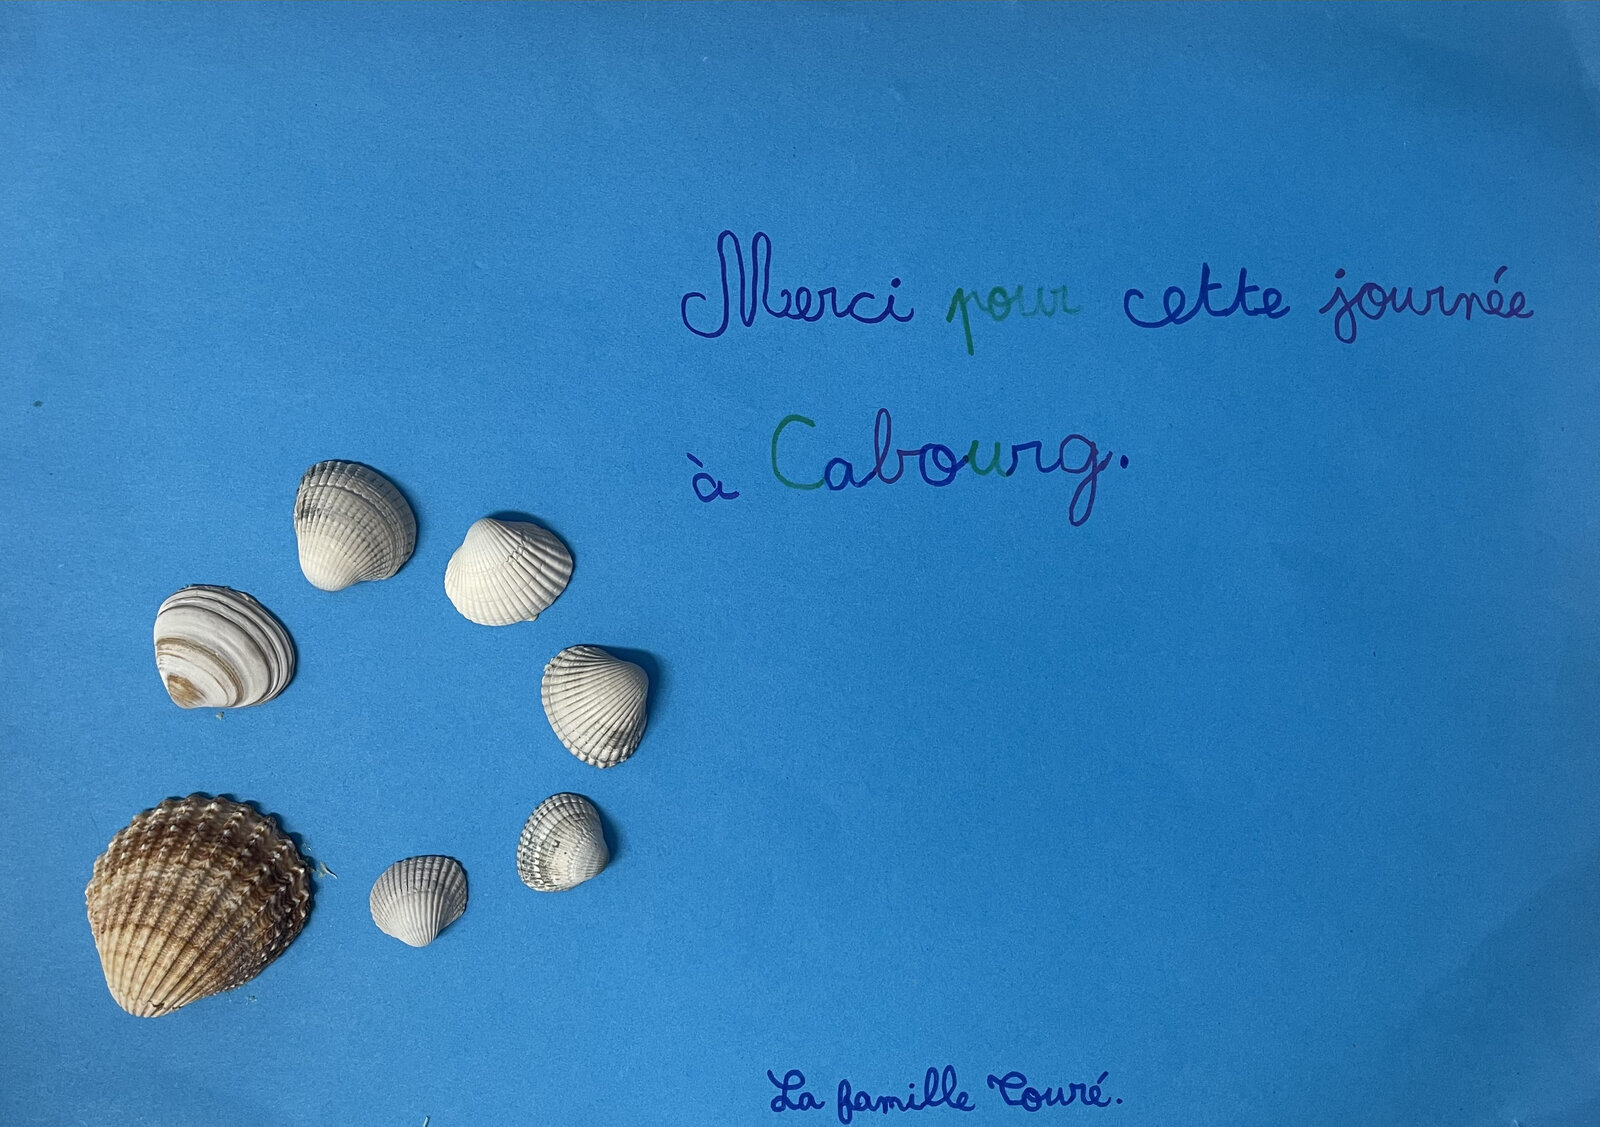 Merci pour cette journée
à Cabourg.
La famille Touré.